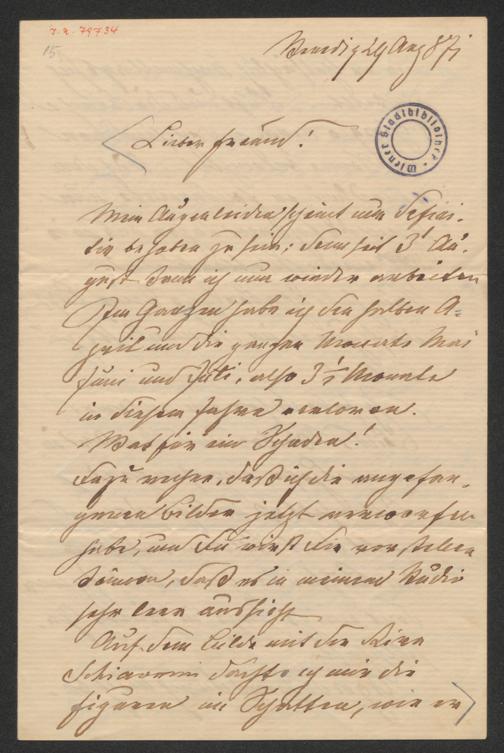 I. N. 79734
15.
Venedig 29 Aug 87
Lieber Freund!
Wiener Stadtbibliothek
Mein Augenleiden scheint nun defini-
tiv behoben zu sein; denn seit 3t Au-
gust kann ich nun wieder arbeiten
Im Ganzen habe ich den halben A-
pril und die ganzen Monate Mai
Juni und Juli, also 3 1/2 Monate
in diesem Jahre verloren.
Was für ein Schaden!
Dazu rechne, daß ich die angefan-
genen Bilder jetzt verworfen
habe, und Du wirst Dir vorstellen
können, daß es in meinem Studio
sehr leer aussieht
Auf dem Bilde mit der Riva
Schiavoni dachte ich mir die
Figuren im Schatten, wie er